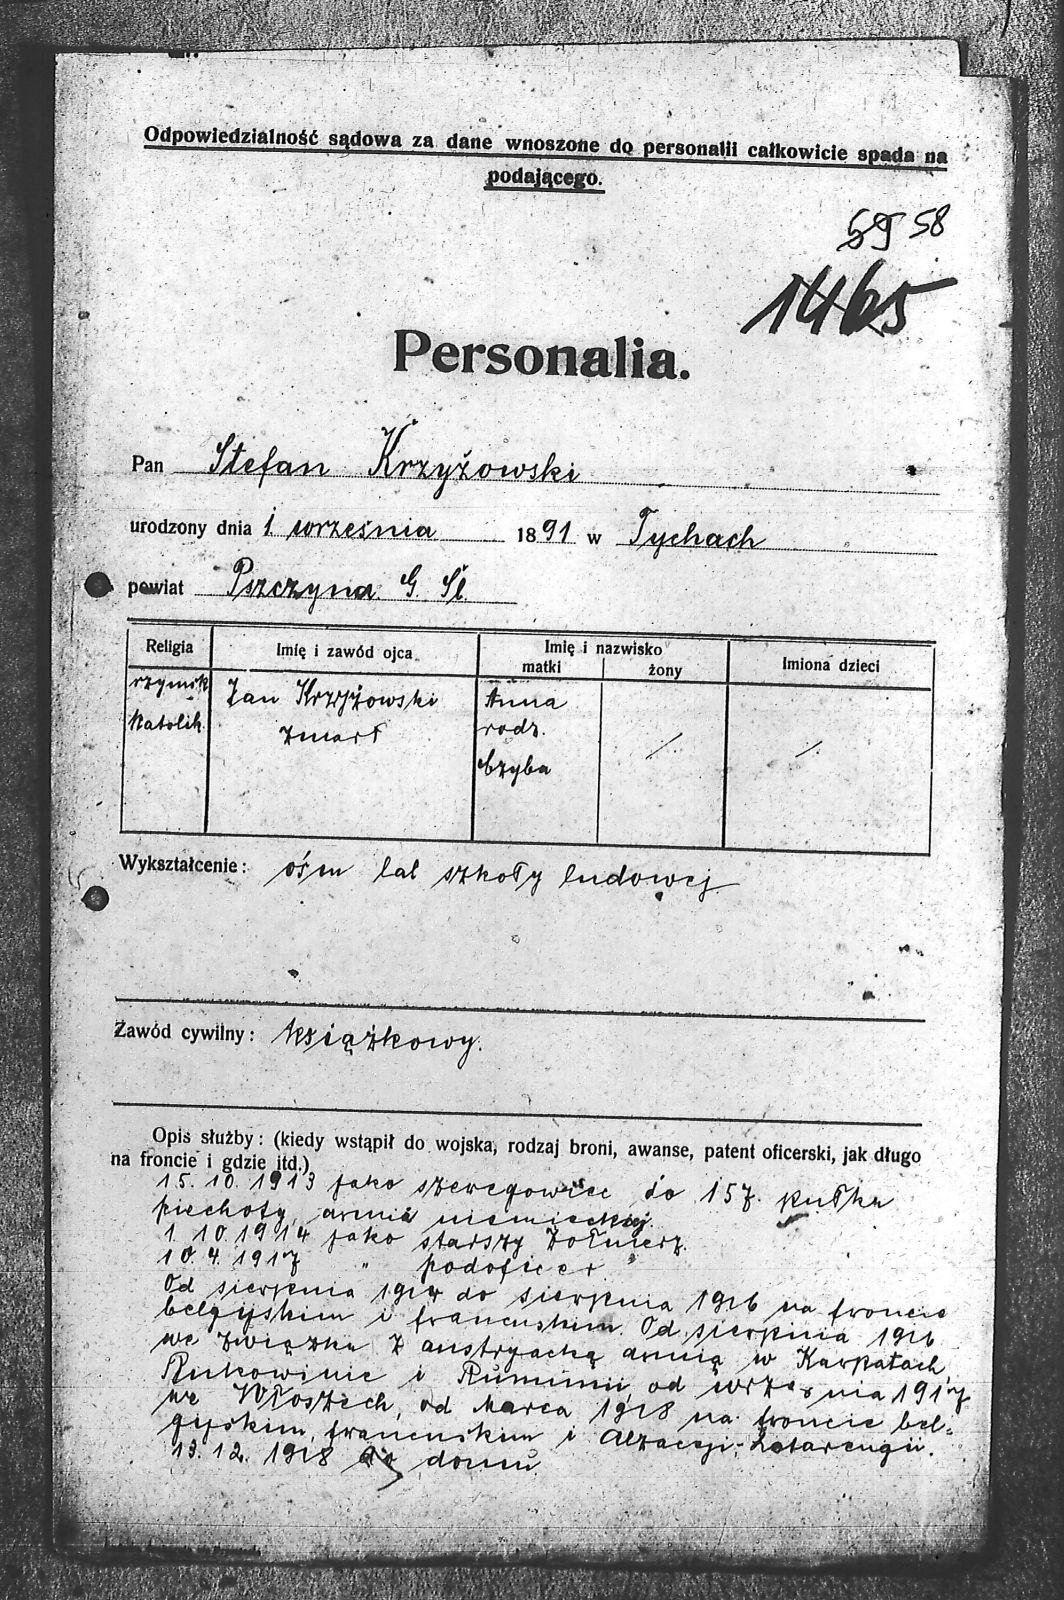 Odpowiedzialność sądowa za dane wnoszone do personalii całkowicie spada na
podającego.
59 58
1465
Personalia.
Pan Stefan Krzyżowski
urodzony dnia 1 września 1891 w Tychach
powiat Pszczyna G. Śl.
Religia
Imię i zawód ojca
Imię i nazwisko
matki
żony
Imiona dzieci
rzymsk
katolik
Jan Krzyżowski
zmarł
Anna
rodz.
Czyba
Wykształcenie: ośm lat szkoły ludowej
Zawód cywilny: książkowy.
Opis służby: (kiedy wstąpił do wojska, rodzaj broni, awanse, patent oficerski, jak długo
na froncie i gdzie itd.)
15. 10. 1913 jako szeregowiec do 157. pułku
piechoty, armii niemieckiej.
1. 10. 1914 jako starszy żołnierz.
10. 4. 1917 " podoficer "
Od sierpnia 1914 do sierpnia 1916 na froncie
belgijskim i francuskim. Od sierpnia 1916
we związku z austryacką armią w Karpatach
Bukowinie i Rumunii, od września 1917
we Włoszech, od Marca 1918 na froncie bel-
gijskim, francuskim i Alzacyi-Lotaryngii.
13. 12. 1918 do domu.